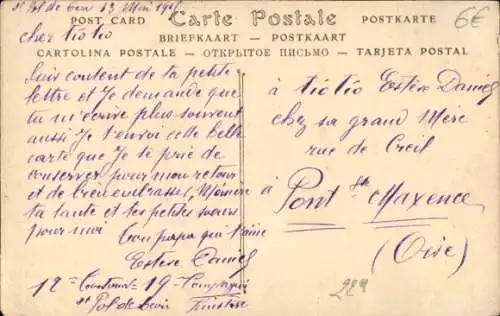 St Pol de Leon 13 Mai 191
POST CARD Carte Postale POSTKARTE
6€
BRIEFKAART — POSTKAART
CARTOLINA POSTALE — ОТКРЫТОЕ ПИСЬМО — TARJETA POSTAL
cher tiotio
suis content de ta petite
lettre et Je demande que
tu m'ecrive plus souvent
aussi Je t'envoi cette belle
carte que Je te prie de
conserver pour mon retour
et de bien embrasser Mémère
ta tante et tes petites sœurs
pour moi
Ton papa qui t'aime
Estève Daniel
12 19 Compagnie
St Pol de Leon Finistère
à tiotio Estève Daniel
chez sa grand Mère
rue de Creil
à Pont Ste Maxence
(Oise)
229